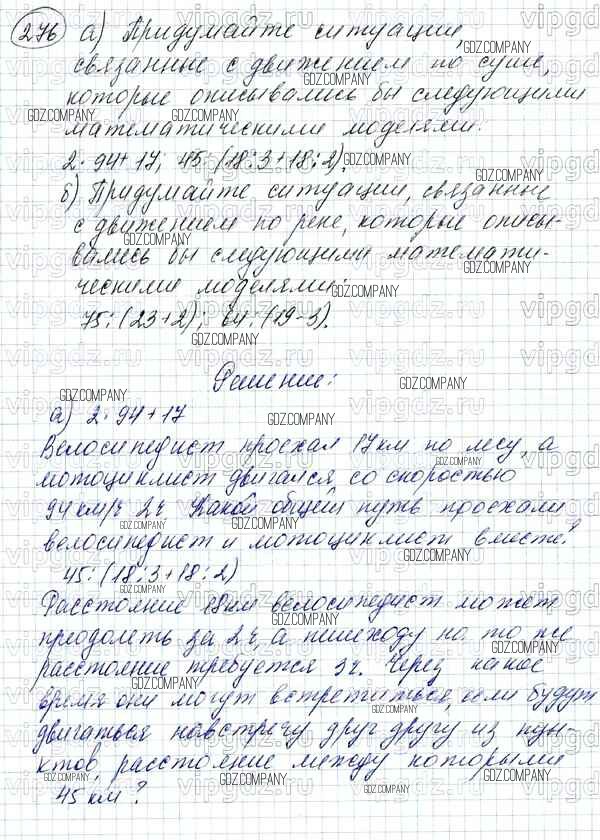 276 а) Придумайте ситуации,
связанные с движением по суше,
которые описывались бы следующими
математическими моделями:
2·94+17; 45:(18:3+18:2).
б) Придумайте ситуации, связанные
с движением по реке, которые описы-
вались бы следующими математи-
ческими моделями:
75:(23+2); 64:(19-3).
Решение:
а) 2·94+17
Велосипедист проехал 17 км по лесу, а
мотоциклист двигался со скоростью
94 км/ч 2 ч. Какой общий путь проехали
велосипедист и мотоциклист вместе?
45:(18:3+18:2)
Расстояние 18 км велосипедист может
преодолеть за 2 ч, а пешеходу на то же
расстояние требуется 3 ч. Через какое
время они могут встретиться, если будут
двигаться навстречу друг другу из пун-
ктов, расстояние между которыми
45 км?